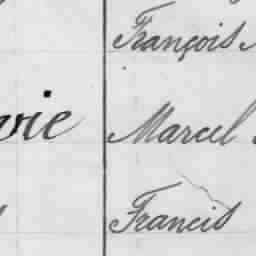 François
vie Marcel
Francis